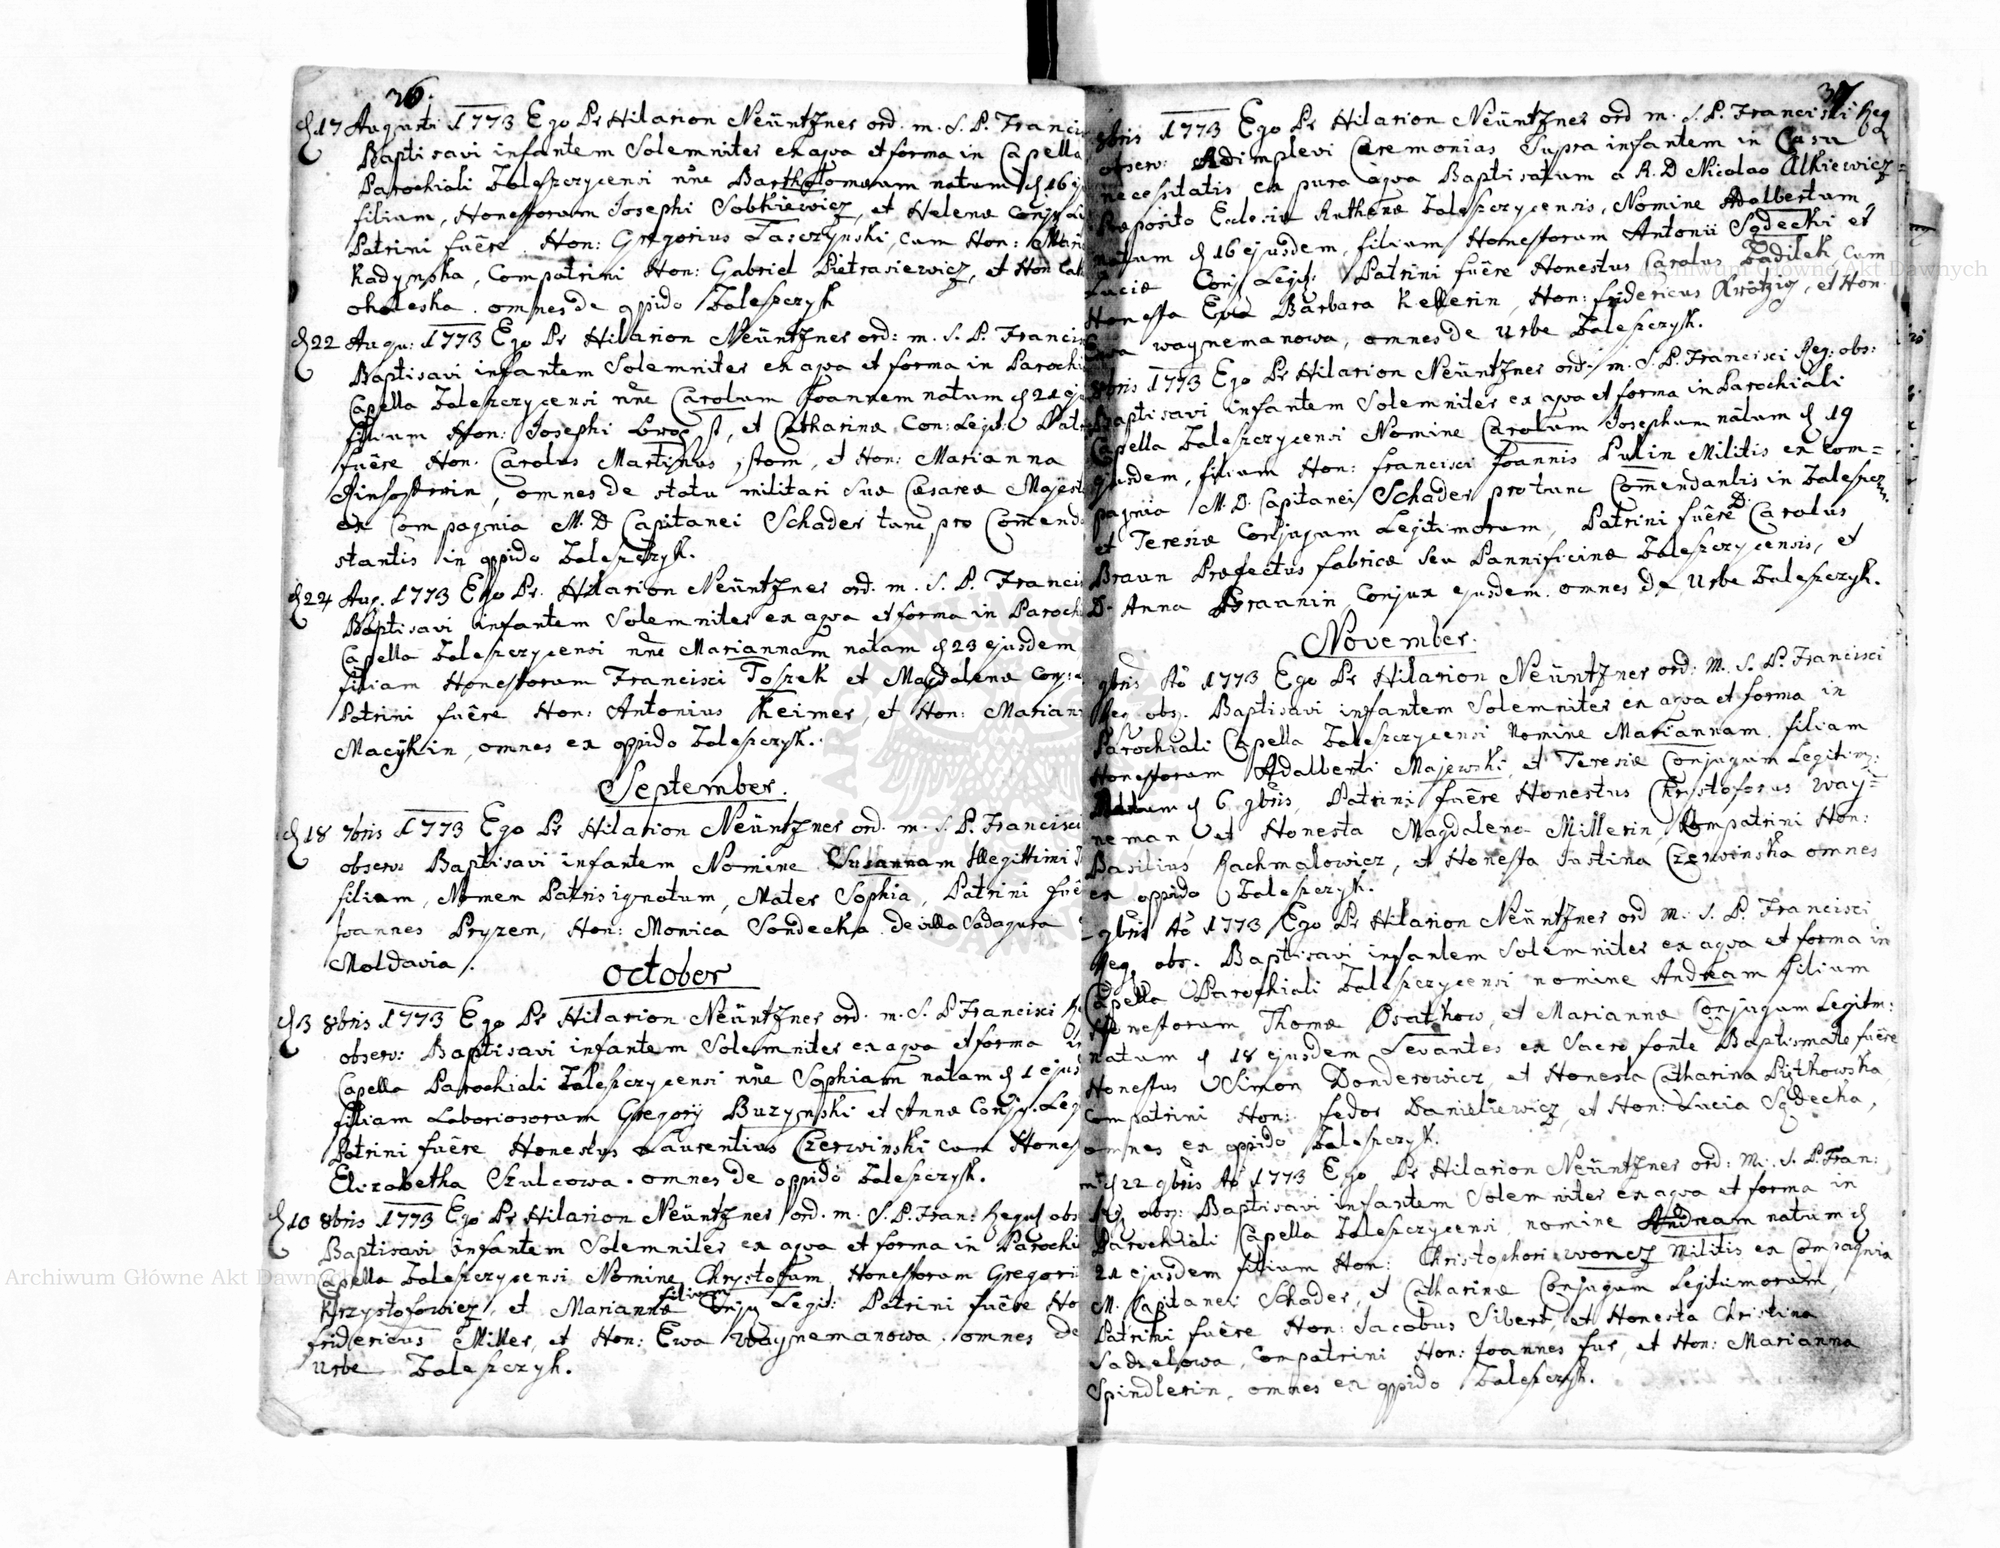 26.
d 17 Augusti 1773 Ego Pr Hilarion Neüntzner ord. m. S. P. Francis
Baptisavi infantem Solemniter ex aqva et forma in Capella
Parochiali Zaleszczycensi nne Bartholomæum natum d 16 ej
filium, Honestorum Josephi Sobkiewicz, et Helenæ Conju
Patrini fuêre Hon: Gregorius Tarczynski, cum Hon: Mari
Radynska, Compatrini Hon: Gabriel Pietrasiewicz, et Hon
okoleska. omnes de oppido Zaleszczyk
d 22 Augu: 1773 Ego Pr Hilarion Neüntzner ord: m. S. P. Francis
Baptisavi infantem Solemniter ex aqva et forma in Parochi
Capella Zaleszczycensi nne Carolum Joannem natum d 21 ej
filium Hon: Josephi et Catharinæ Con: Legit: Patri
fuêre Hon. Carolus Martinus Stom, et Hon: Marianna
omnes de statu militari Suæ Cæsareæ Majest
ex Compagnia M. D. Capitanei Schader tunc pro Comend
stantis in oppido Zaleszczyk.
d 24 Aug. 1773 Ego Pr. Hilarion Neüntzner ord. m. S. P. Francis
Baptisavi infantem Solemniter ex aqva et forma in Paroch
Capella Zaleszczycensi nne Mariannam natam d 23 ejusdem
filiam Honestorum Francisci Toszek et Magdalenæ Conj:
Patrini fuêre Hon: Antonius Keimer, et Hon: Mariann
Macÿkin, omnes ex oppido Zaleszczyk.
September.
d 18 7bris 1773 Ego Pr Hilarion Neüntzner ord. m. S. P. Francisci
observ: Baptisavi infantem Nomine Susannam Illegittimi
filiam, Nomen Patris ignotum, Mater Sophia, Patrini fuê
Joannes Pryzen, Hon: Monica Sondecka de villa Sadagura
Moldavia.
October
d 3 8bris 1773 Ego Pr Hilarion Neüntzner ord. m. S. P. Francisci Re
observ: Baptisavi infantem Solemniter ex aqva et forma in
Capella Parochiali Zaleszczycensi nne Sophiam natam d 1 ejus
filiam Laboriosorum Gregorÿ Buzynski et Annæ Conju. Leg
Patrini fuêre Honestus Laurentius Czerwinski cum Hones
Elizabetha Szulcowa. omnes de oppido Zaleszczyk.
d 10 8bris 1773 Ego Pr Hilarion Neüntzner ord. m. S. P. Fran: Regul obs
Baptisavi infantem Solemniter ex aqva et forma in Parochi
Capella Zaleszczycensi Nomine Chrystofum, Honestorum Gregorii
filium
Krzysztofowicz, et Mariannæ Conju Legit: Patrini fuêre Ho
fridericus Miller, et Hon: Ewa Waynemanowa. omnes de
Urbe Zaleszczyk.
37
8bris 1773 Ego Pr Hilarion Neüntzner ord m. S. P. Francisci Reg
observ: Adimplevi Ceremonias Supra infantem in Casu
necessitatis ex pura aqva Baptisatum a R. D Nicolao Alkiewicz
Præposito Eclesiæ Ruthenæ Zaleszczycensis, Nomine Adalbertum,
natum d 16 ejusdem, filium Honestorum Antonii Sądecki et
Luciæ Conj Legit: Patrini fuêre Honestus Carolus Zadiłek, cum
Honesta Eva Barbara Kellerin, Hon: fridericus Krötzig, et Hon
Ewa waynemanowa, omnes de Urbe Zaleszczyk.
8bris 1773 Ego Pr Hilarion Neüntzner ord: m. S. P. Francisci Reg: obs:
Baptisavi infantem Solemniter ex aqva et forma in Parochiali
Capella Zaleszczycensi Nomine Carolum Josephum natum d 19
ejusdem, filium Hon: francisci Joannis Pulin Militis ex Com=
pagnia M. D. Capitanei Schader pro tunc Comendantis in Zaleszcz
et Teresiæ Conjugum Legitimorum, Patrini fuêre D. Carolus
Braun Præfectus fabricæ Seu Pannificinæ Zaleszczycensis, et
D. Anna Braanin Conjux ejusdem. omnes de Urbe Zaleszczyk.
November.
9bris Aō 1773 Ego Pr Hilarion Neüntzner ord: m. S. P. Francisci
Reg. obs. Baptisavi infantem Solemniter ex aqva et forma in
Parochiali Capella Zaleszczycensi Nomine Mariannam filiam
Honestorum Adalberti Majewski, et Teresiæ Conjugum Legitim:
natam d 6 9bris, Patrini fuêre Honestus Chrystoforus Way=
neman, et Honesta Magdalena Millerin, Compatrini Hon:
Basilius Rachmalowicz, et Honesta Justina Czerwinska omnes
ex oppido Zaleszczyk.
9bris Aō 1773 Ego Pr Hilarion Neüntzner ord m. S. P. Francisci
Reg obs. Baptisavi infantem Solemniter ex aqva et forma in
Capella Parochiali Zaleszczycensi nomine Andream filium
Honestorum Thomæ Osatkow, et Mariannæ Conjugum Legitm:
natum d 18 ejusdem Levantes ex Sacro fonte Baptismatis fuêre
Honestus Simon Donderowicz, et Honesta Catharina Piłkowska,
Compatrini Hon: fedor Danielewicz, et Hon: Lucia Sądecka,
omnes ex oppido Zaleszczyk.
d 22 9bris Aō 1773 Ego Pr Hilarion Neüntzner ord: m. S. P. Fran:
Reg obs: Baptisavi infantem Solemniter ex aqva et forma in
Parochiali Capella Zaleszczycensi nomine Andream natum d
21 ejusdem filium Hon: Christophori woncz Militis ex Compagnia
M. Capitanei Schader, et Catharinæ Conjugum Legitimorum,
Patrini fuêre Hon: Jacobus Sibert, et Honesta Christina
Sadzelowa, Compatrini Hon: Joannes fur, et Hon: Marianna
Spindlerin, omnes ex oppido Zaleszczyk.
Archiwum Główne Akt Dawnych